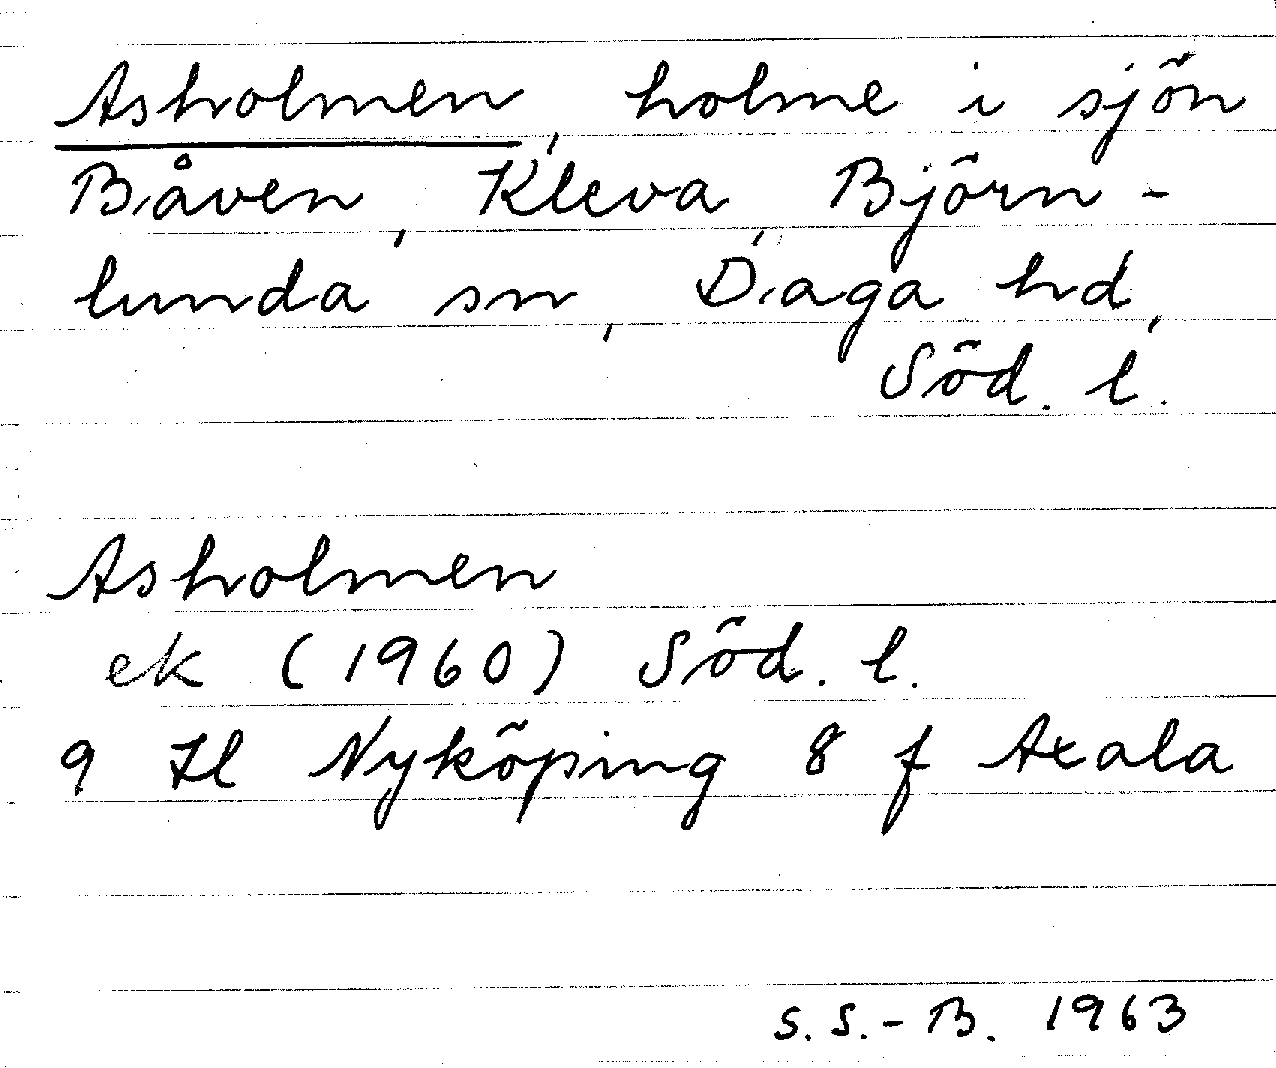 Asholmen, holme i sjön
Båven, Kleva, Björn-
lunda sn, Daga hd,
Söd. l.
Asholmen
ek (1960) Söd. l.
9 H Nyköping 8 f Axala
S. S.-B. 1963